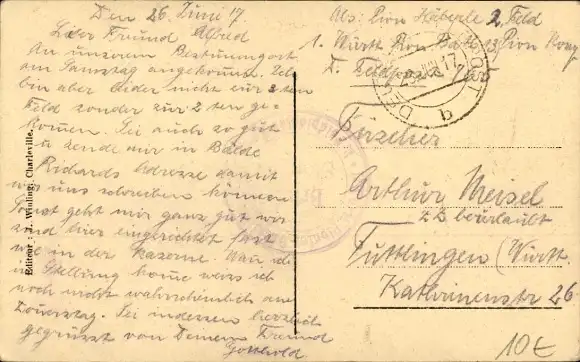 Den 26. Juni 17.
Lieber Freund Alfred
An unserem Bestimungsort
am Samstag angekomen. Ich
bin aber leider nicht zur 3ten
Feld sonder zur 2ten ge-
komen. Sei auch so gut
u sende mir in Bälde
Richards Adresse damit
wir uns schreiben können
Sonst geht mir ganz gut wir
sind hier eingerichtet fast
wie in der Kaserne. Wan ich
in Stellung kome weis ich
noch nicht wahrscheinlich am
Donerstag. Sei indessen herzlich
gegrüsst von Deinem Freund
Gotthold
Abs: Pion Häberle 2. Feld
1. Württ Pion Batl 13 Pion Komp
Feldpost
Arthur Meisel
zZ beurlaubt
Tuttlingen (Württ.
Katharinenstr 26
10€
Editeur : J. Winling, Charleville.